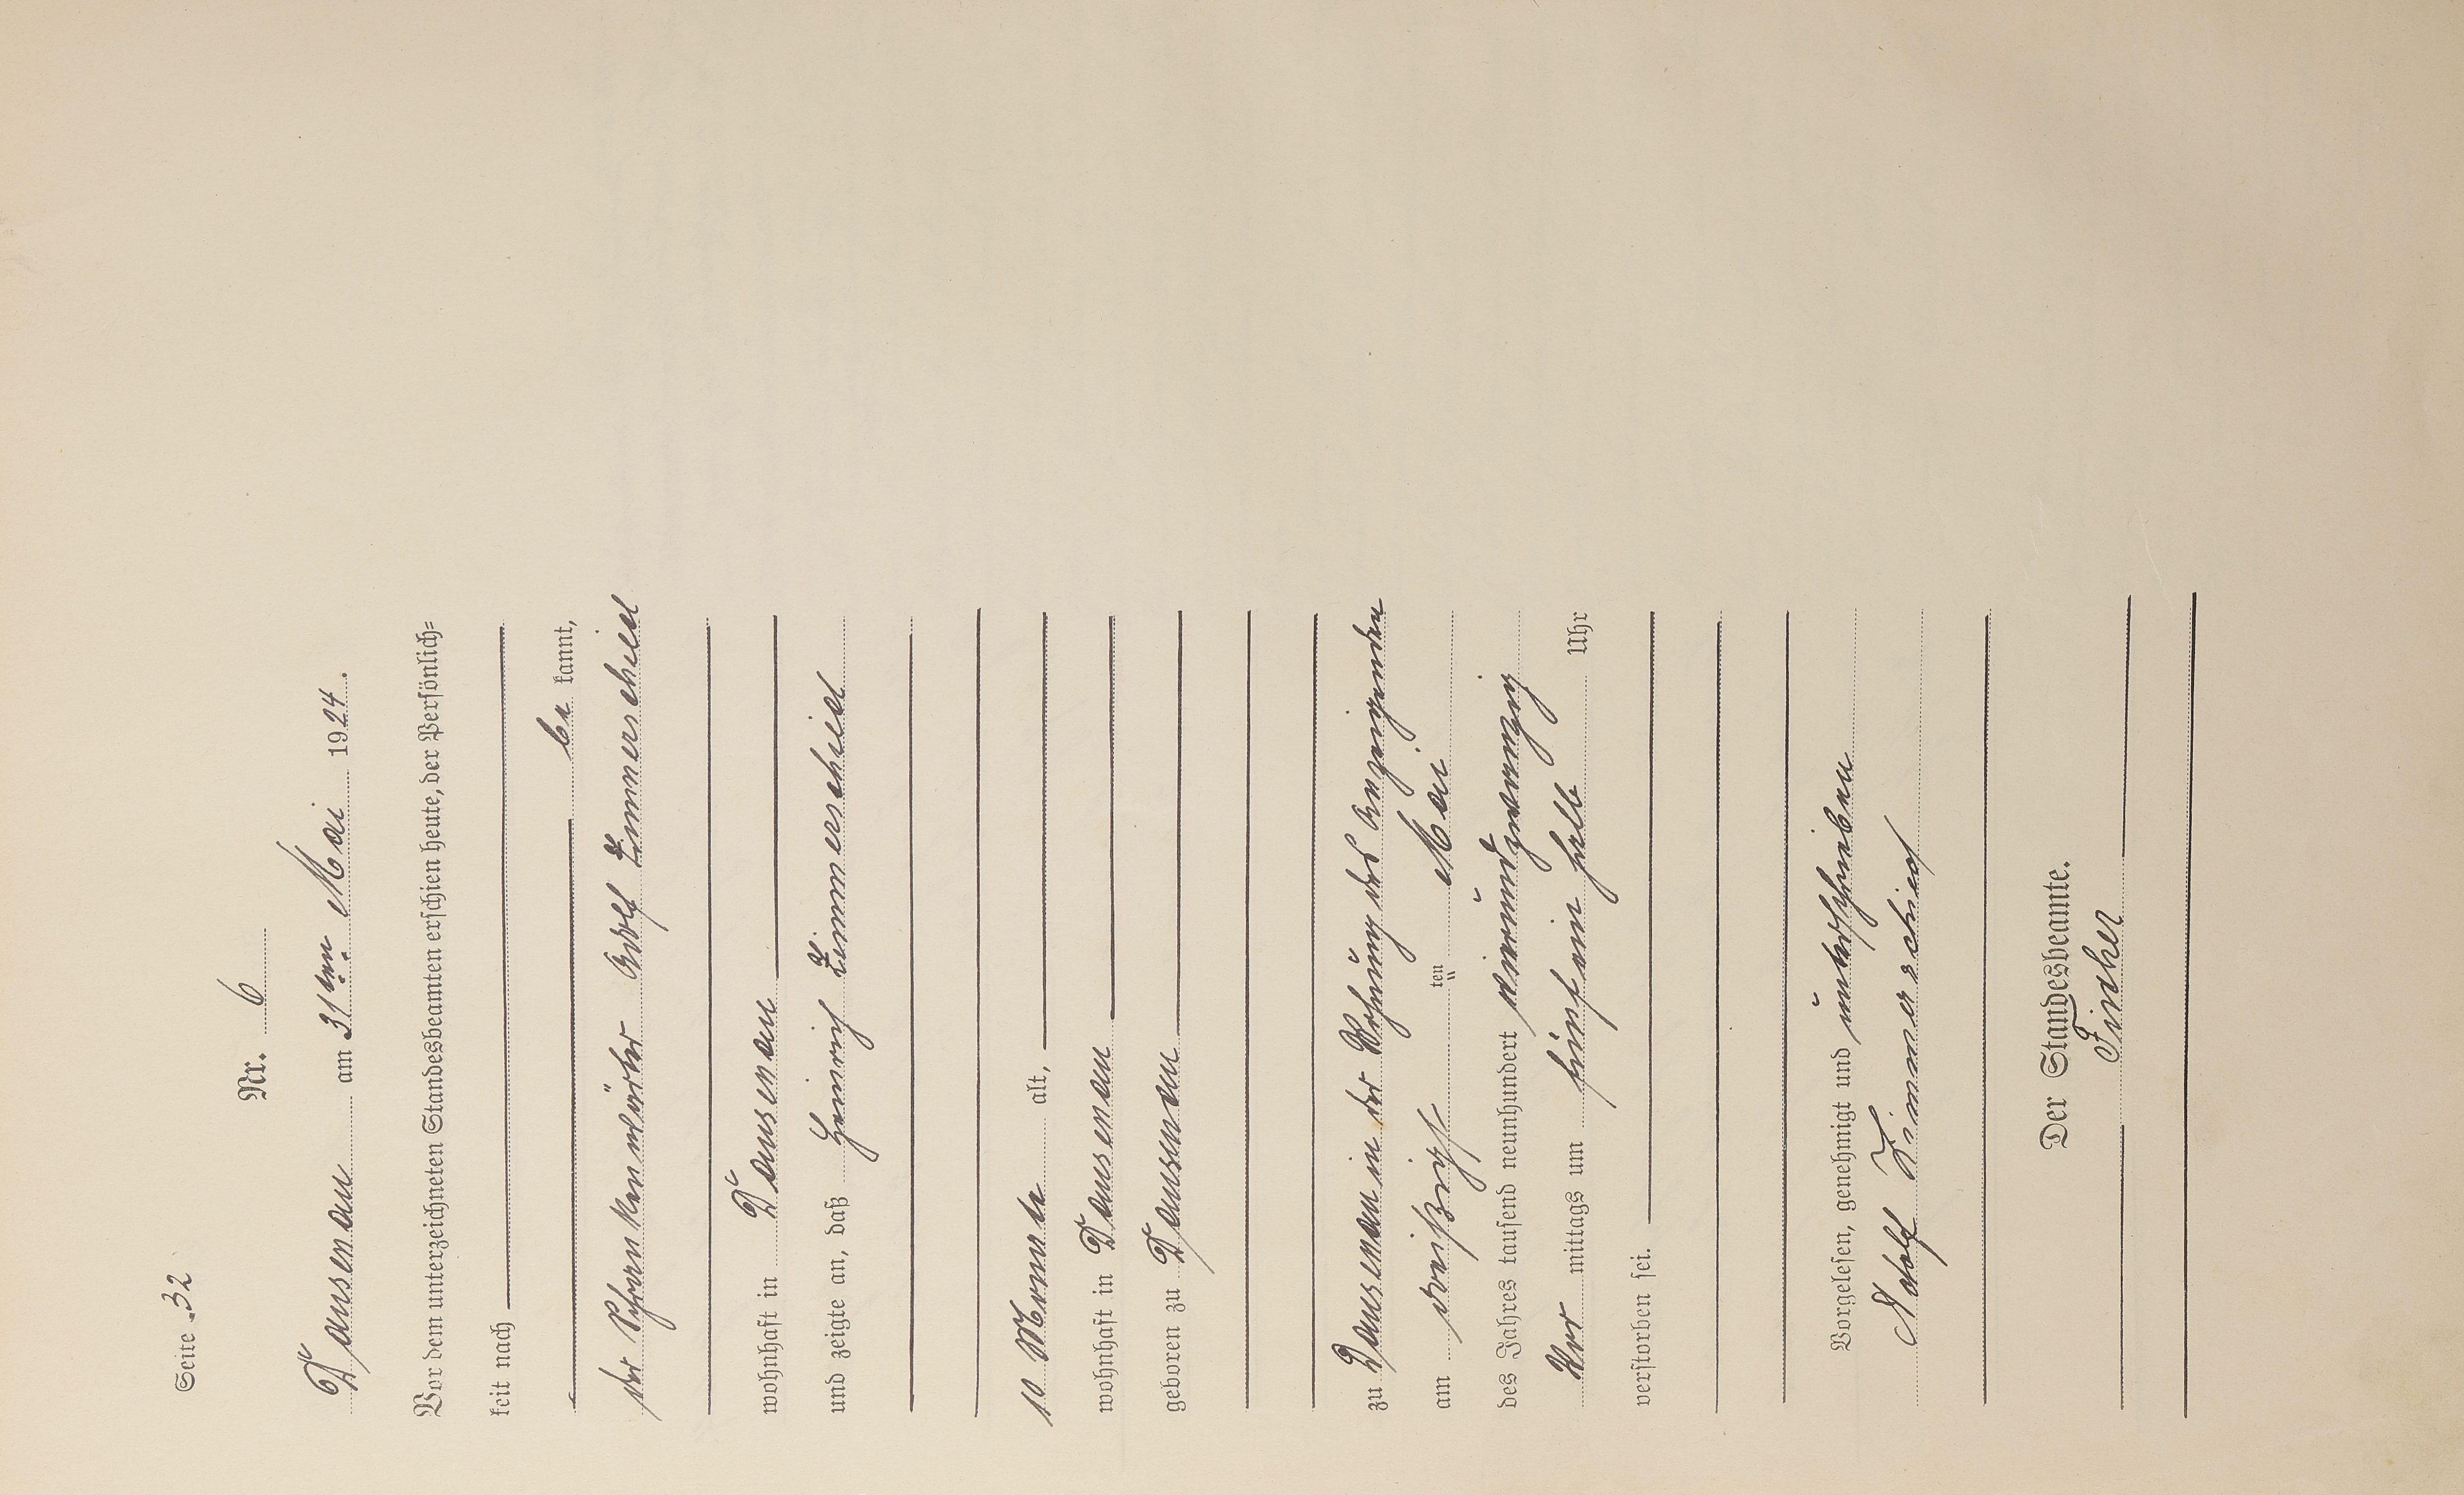 Seite 32
Nr. 6
Dausenau am 31ten Mai 1924.
Vor dem unterzeichneten Standesbeamten erschien heute, der Persönlich=
keit nach
be kannt,
der Schrankenwärter Adolf Zimmerschied
wohnhaft in Dausenau
und zeigte an, daß Heinrich Zimmerschied
10 Monate alt,
wohnhaft in Dausenau
geboren zu Dausenau
zu Dausenau in der Wohnung des Anzeigenden
am dreißigsten Mai
des Jahres tausend neunhundert vierundzwanzig
Vor mittags um fünf ein halb Uhr
verstorben sei.
Vorgelesen, genehmigt und unterschrieben
Adolf Zimmerschied
Der Standesbeamte.